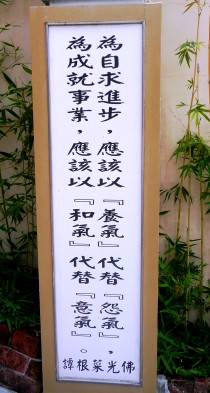 為自求進步，應該以『養氣』代替『怨氣』，
為成就事業，應該以『和氣』代替『意氣』。
佛光菜根譚